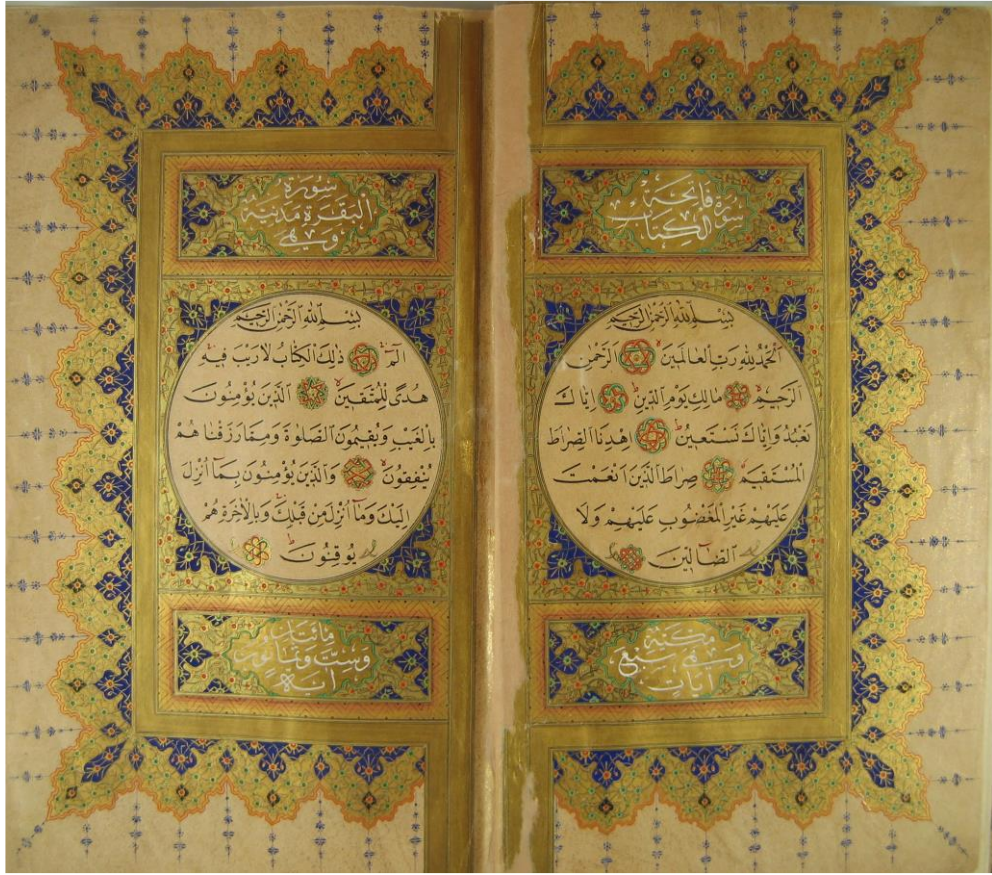 سورة فاتحة
الكتاب
بسم الله الرحمن الرحيم
الحمد لله رب العالمين الرحمن
الرحيم مالك يوم الدين اياك
نعبد واياك نستعين اهدنا الصراط
المستقيم صراط الذين انعمت
عليهم غير المغضوب عليهم ولا
الضالين
مكية
وهي سبع
آيات
سورة
البقرة مدنية
وهي
بسم الله الرحمن الرحيم
الم ذلك الكتاب لا ريب فيه
هدى للمتقين الذين يؤمنون
بالغيب ويقيمون الصلوة ومما رزقناهم
ينفقون والذين يؤمنون بما أنزل
اليك وما أنزل من قبلك وبالآخرة هم
يوقنون
مائتان
وست وثمانون
آية